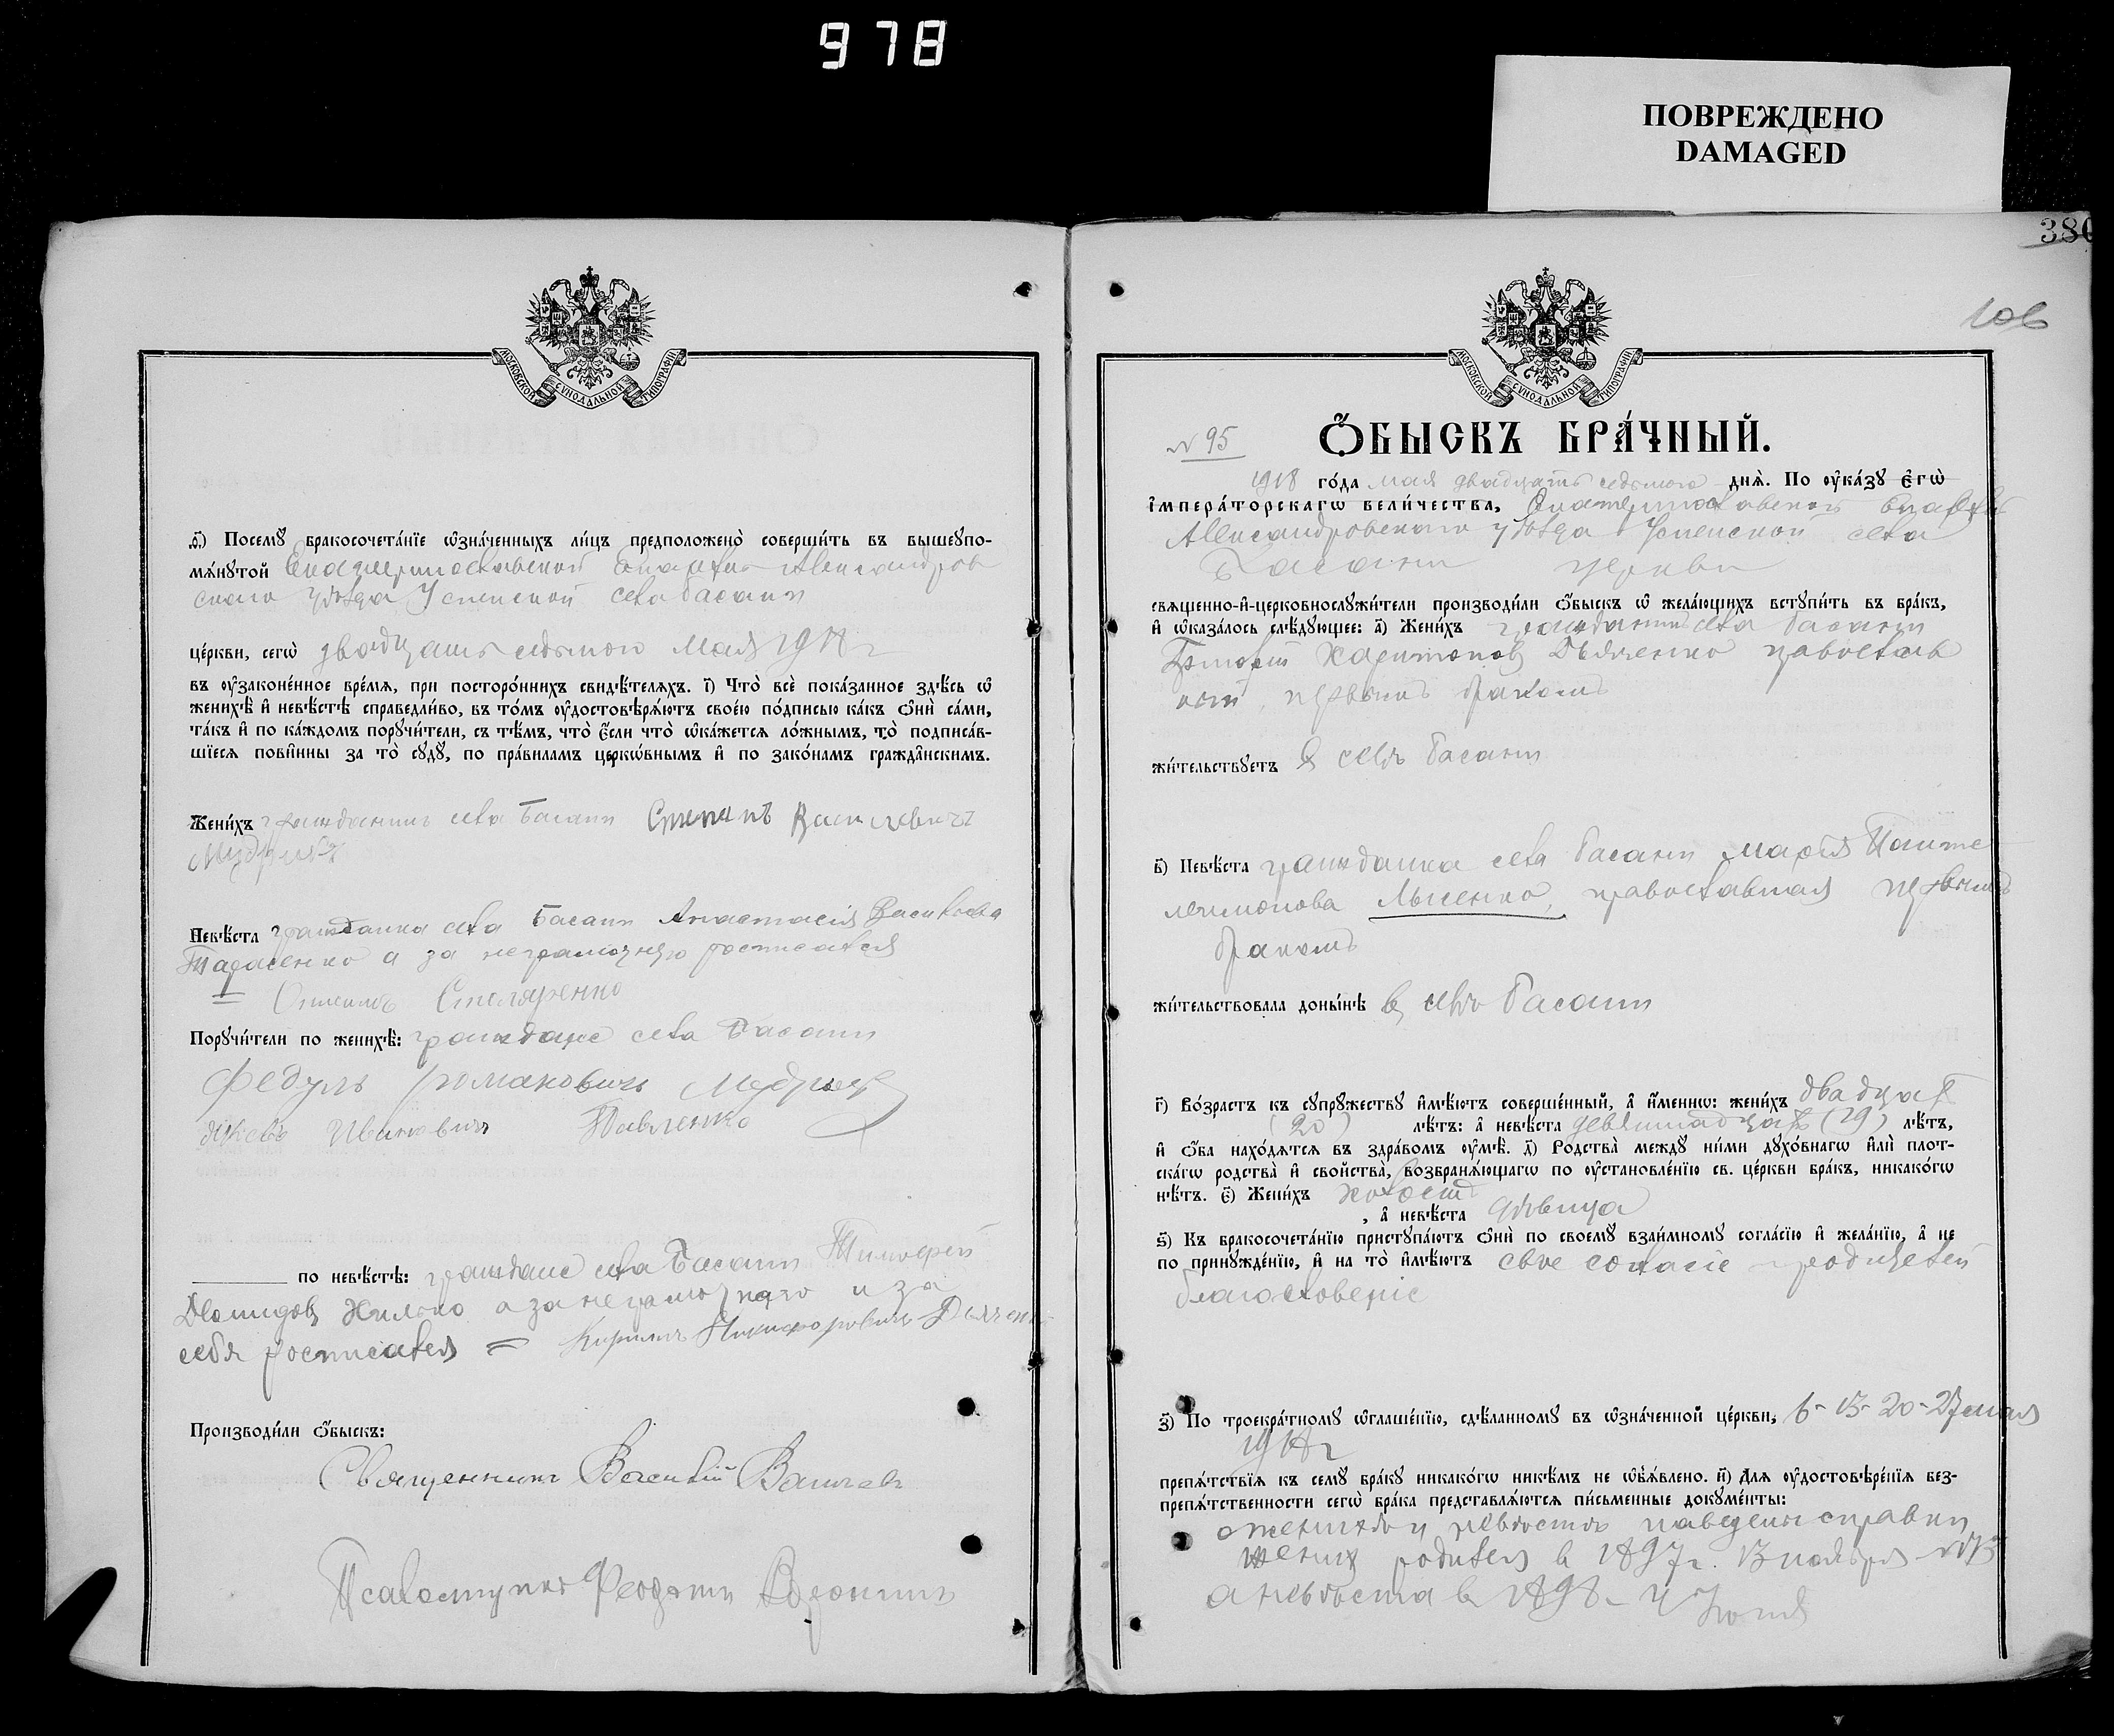 978
ПОВРЕЖДЕНО
DAMAGED
МОСКОВСКОЙ СѴНОДАЛЬНОЙ ТИПОГРАФІИ
д҃і) Посемꙋ бракосочета́нїе ѡзна́ченныхъ ли́цъ предположено̀ соверши́ть въ вышеꙋпо-
мѧ́нꙋтой Екатеринославской епархіи Александров
скаго уѣзда Успенской села Басани
це́ркви, сегѡ̀ двадцать седьмого мая 1918 г
въ ᲂу҆законе́нное вре́мѧ, при посторо́ннихъ свидѣ́телѧхъ. і҃) Что̀ всѐ пока́занное здѣ́сь ѡ҆
женихѣ̀ и҆ невѣ́стѣ справедли́во, въ то́мъ ᲂу҆достовѣрѧ́ютъ свое́ю по́дписью ка́къ ѻ҆нѝ са́ми,
та́къ и҆ по ка́ждомъ порꙋчи́тели, съ тѣ́мъ, что̀ є҆́сли что̀ ѡ҆ка́жетсѧ ло́жнымъ, то̀ подписа́в-
шїесѧ пови́нны за то̀ сꙋдꙋ̀, по пра́виламъ церкѡ́внымъ и҆ по зако́намъ гражда́нскимъ.
Жени́хъ гражданинъ села Басани Степанъ Васильевичъ
Мудрикъ
Невѣ́ста гражданка села Басани Анастасія Васильева
Тарасенко а за неграмотную росписался
= Столяренко
Порꙋчи́тели по женихѣ̀: граждане села Басани
Федулъ Романовичъ
Иванович Павленко
по невѣ́стѣ: граждане села Басани Тимофей
Демидовъ а за неграмотнаго и за
себя росписался = Кирилъ Никифоровичъ
Производи́ли ѻ҆́быскъ:
Священникъ Василій
Псаломщикъ
380
106
№ 95
Ѻ҆́БЫСКЪ БРА́ЧНЫЙ.
1918 го́да мая двадцать седьмого днѧ̀. По ᲂу҆ка́зꙋ Є҆гѡ̀
і҆мпера́торскагѡ вели́чества, Екатеринославской епархіи
Александровскаго уѣзда Успенской села
Басани церкви
свѧще́нно-и҆-церковнослꙋжи́тели производи́ли ѻ҆́быскъ ѡ҆ жела́ющихъ встꙋпи́ть въ бра́къ,
и҆ ѡ҆каза́лось слѣ́дꙋющее: а҃) Жени́хъ гражданинъ села Басани
Харитоновъ Дьяченко православ
ный, первымъ бракомъ
жи́тельствꙋетъ в селѣ Басани
в҃) Невѣ́ста гражданка села Басани Марія Панте
леимонова Лысенко, православная первымъ
бракомъ
жи́тельствовала доны́нѣ в селѣ Басани
г҃) Во́зрастъ къ сꙋпрꙋ́жествꙋ и҆мѣ́ютъ соверше́нный, а҆ и҆́меннѡ: жени́хъ двадцать
(20) лѣ́тъ: а҆ невѣ́ста девятнадцать (19) лѣ́тъ,
и҆ ѻ҆́ба нахо́дѧтсѧ въ здра́вомъ ᲂу҆мѣ̀. д҃) Родства̀ междꙋ̀ ни́ми дꙋхо́внагѡ и҆лѝ плот-
ска́гѡ родства̀ и҆ свойства̀, возбранѧ́ющагѡ по ᲂу҆становле́нїю св. це́ркви бра́къ, никако́гѡ
нѣ́тъ. є҃) Жени́хъ холостъ
, а҆ невѣ́ста дѣвица
ѕ҃) Къ бракосочета́нїю пристꙋпа́ютъ ѻ҆нѝ по своемꙋ̀ взаи́мномꙋ согла́сїю и҆ жела́нїю, а҆ не
по принꙋжде́нїю, и҆ на то̀ и҆мѣ́ютъ свое согласіе родителей
благословеніе
з҃) По троекра́тномꙋ ѡ҆глаше́нїю, сдѣ́ланномꙋ въ ѡ҆зна́ченной це́ркви, 6-13-20-27 мая
1918 г
препѧ́тствїѧ къ семꙋ̀ бра́кꙋ никако́гѡ никѣ́мъ не ѡ҆б̾ѧ́влено. и҃) Длѧ ᲂу҆достовѣре́нїѧ без-
препѧ́тственности сегѡ̀ бра́ка представлѧ́ютсѧ пи́сьменные докꙋме́нты:
о женихѣ и невѣстѣ наведены справки
жених родился в 1897 г. 13 ноября
а невѣста в 1898